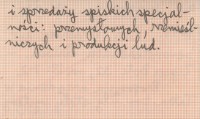 i sprzedaży spiskich specjal-
ności: przemysłowych, rzemieśl-
niczych i produkcji lud.